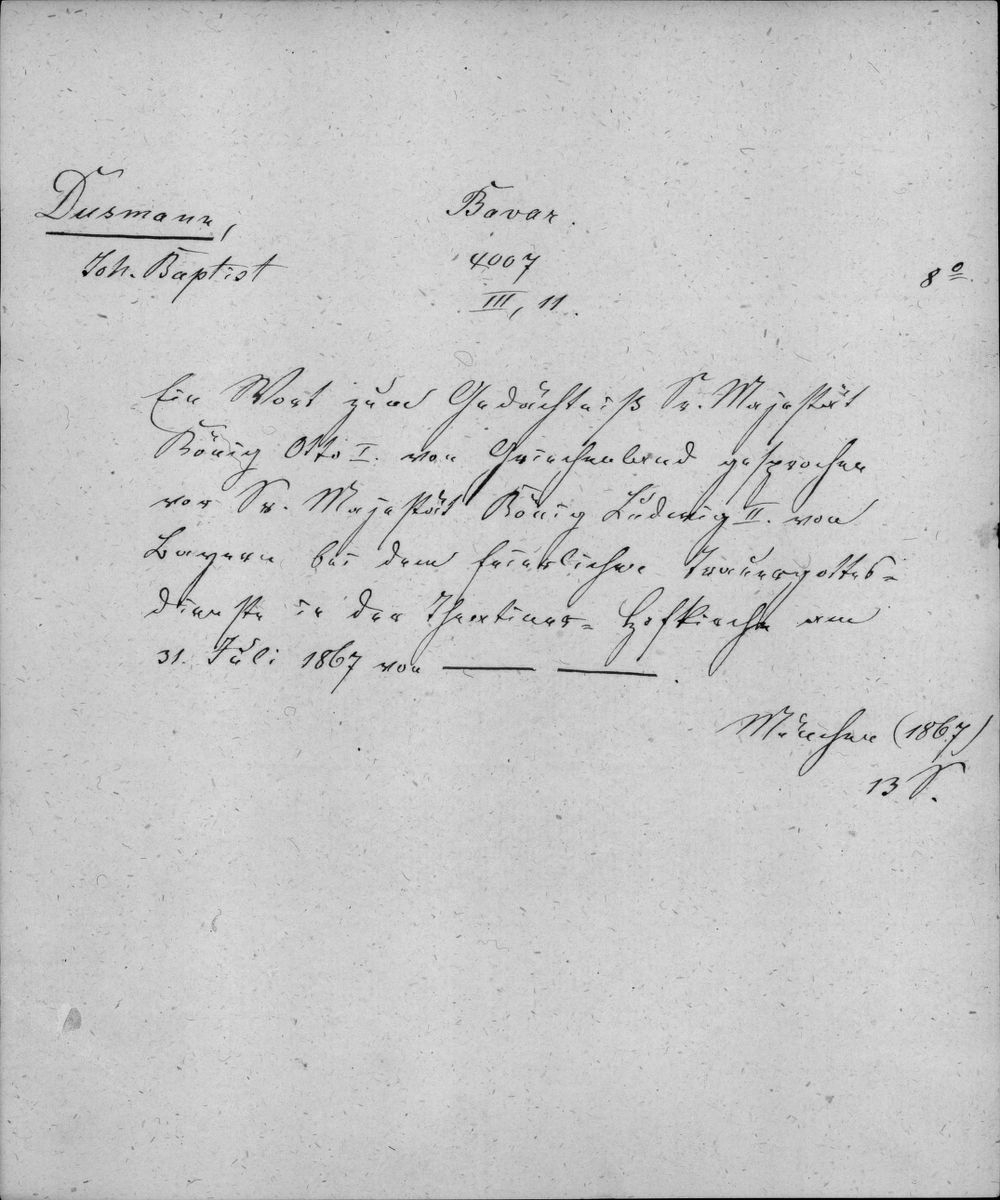 Dusmann,
Joh. Baptist
Bavar.
4007
III, 11.
8º
Ein Wort zum Gedächtniß Sr. Majestät
König Otto I. von Griechenland gesprochen
vor Sr. Majestät König Ludwig II. von
Bayern bei dem feierlichen Trauergottes-
dienste in der Theatiner-Hofkirche am
31. Juli 1867 von — —.
München (1867)
13 S.